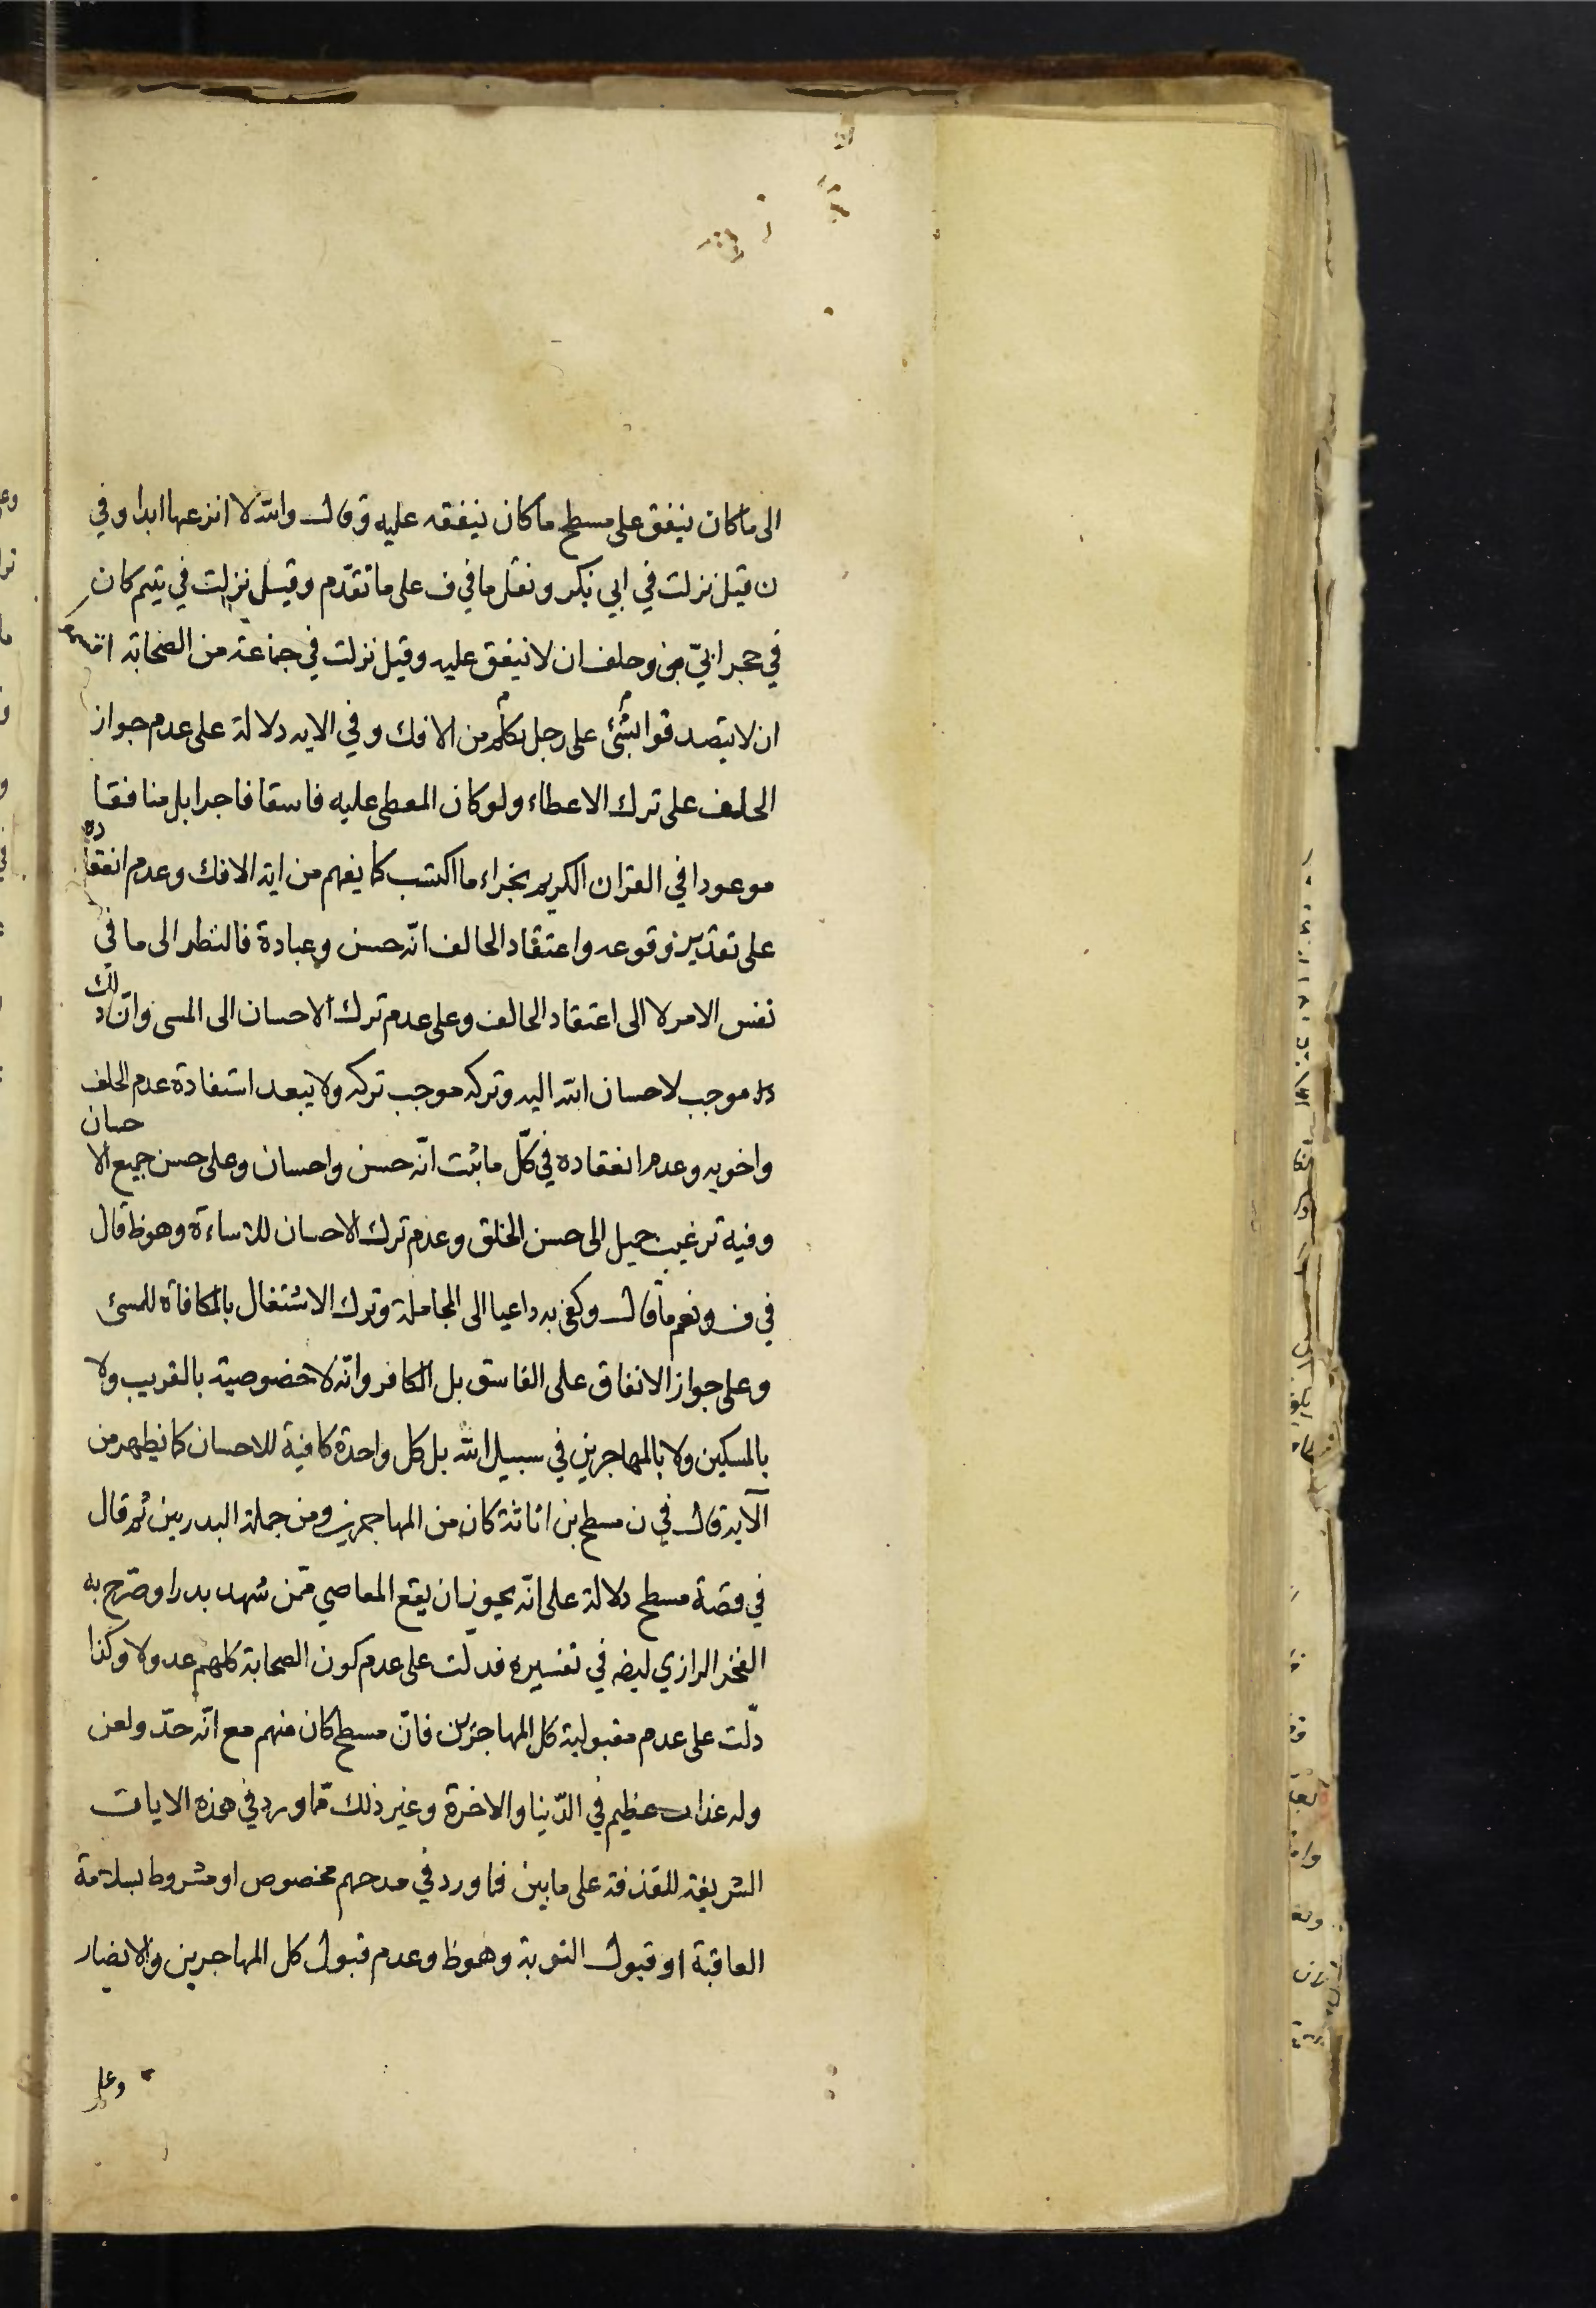 الى ماكان ينفق على مسطح ماكان ينفقه عليه وقال والله لا انزعها ابدا وفي
ن قيل نزلت في ابي بكر ونقل ما في ف على ما تقدّم وقيل نزلت في يتيم كان
في حجر ابي بكر وحلف ان لا ينفق عليه وقيل نزلت في جماعة من الصحابة اقسموا
ان لا يتصدقوا بشئ على رجل تكلم من الافك وفي الايه دلالة على عدم جواز
الحلف على ترك الاعطاء ولو كان المعطى عليه فاسقا فاجرا بل منافقا
موعودا في القران الكريم بجزاء ما اكتسب كما يفهم من اية الافك وعدم انعقاده
على تقدير وقوعه واعتقاد الحالف انّه حسن وعبادة فالنظر الى ما في
نفس الامر لا الى اعتقاد الحالف وعلى عدم ترك الاحسان الى المسى وانّ ذلك
موجب لاحسان الله اليه وتركه موجب تركه ولا يبعد استفادة عدم الحلف
واخويه وعدم انعقاده في كلّ ما يثبت انّه حسن واحسان وعلى حسن جميع الاحسان
وفيه ترغيب جميل الى حسن الخلق وعدم ترك الاحسان للاساءة وهو ظ قال
في ف ونعم ما قال وكفى به داعيا الى المجاملة وترك الاشتغال بالمكافاة للمسئ
وعلى جواز الانفاق على الفاسق بل الكافر وانّه لا خصوصية بالقريب ولا
بالمسكين ولا بالمهاجرين في سبيل الله بل كل واحدة كافية للاحسان كما يظهر من
الآية قال في ن مسطح بن اثاثة كان من المهاجرين ومن جملة البدريين ثم قال
في قصة مسطح دلالة على انّه يجوز ان يقع المعاصي ممّن شهد بدرا وصرّح به
الفخر الرازي ايضه في تفسيره فدلت على عدم كون الصحابة كلهم عدولا وكذا
دلّت على عدم مقبولية كل المهاجرين فانّ مسطح كان منهم مع انّه حدّ ولعن
وله عذاب عظيم في الدّنيا والاخرة وغير ذلك ممّا ورد في هذه الايات
الشريفة للقذفة على ما بين فما ورد في مدحهم مخصوص او مشروط بسلامة
العاقبة او قبول التوبة وهو ظ وعدم قبول كل المهاجرين والانصار
وعلى